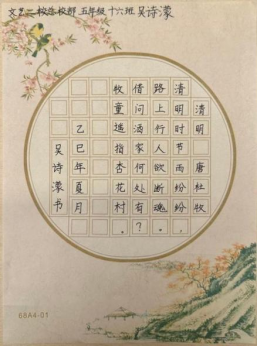 文艺二校总校部 五年级 十六班 吴诗濛
清明 唐 杜牧
清明时节雨纷纷，
路上行人欲断魂。
借问酒家何处有？
牧童遥指杏花村。
乙巳年夏月
吴诗濛书
68A4-01